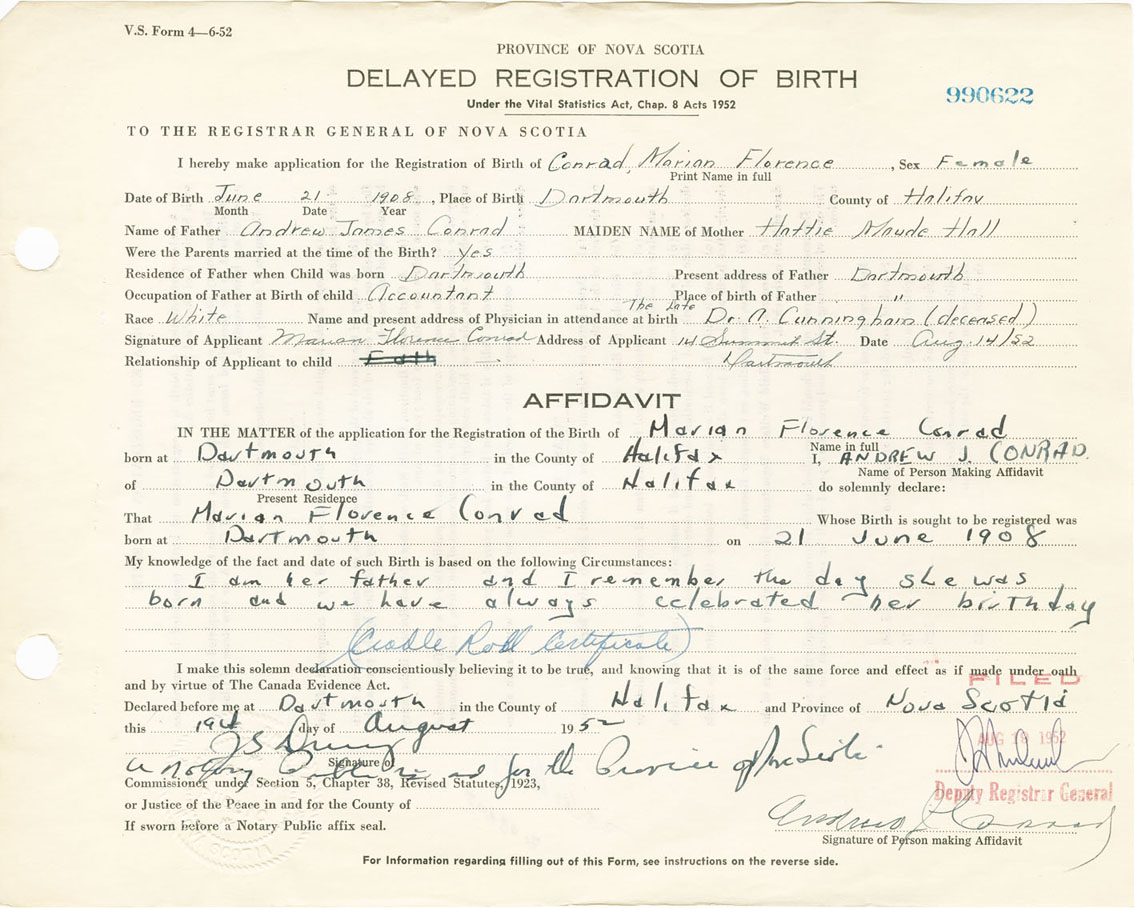 V.S. Form 4—6-52
PROVINCE OF NOVA SCOTIA
DELAYED REGISTRATION OF BIRTH
990622
Under the Vital Statistics Act, Chap. 8 Acts 1952
TO THE REGISTRAR GENERAL OF NOVA SCOTIA
I hereby make application for the Registration of Birth of Conrad, Marian Florence, Sex Female
Print Name in full
Date of Birth June 21 1908, Place of Birth Dartmouth County of Halifax
Month Date Year
Name of Father Andrew James Conrad MAIDEN NAME of Mother Hattie Maude Hall
Were the Parents married at the time of the Birth? Yes
Residence of Father when Child was born Dartmouth Present address of Father Dartmouth
Occupation of Father at Birth of child Accountant Place of birth of Father "
Race White Name and present address of Physician in attendance at birth The late Dr. A. Cunningham (deceased)
Signature of Applicant Marian Florence Conrad Address of Applicant 14 Summit St. Date Aug. 14/52
Relationship of Applicant to child Fath Dartmouth
AFFIDAVIT
IN THE MATTER of the application for the Registration of the Birth of Marian Florence Conrad
Name in full
born at Dartmouth in the County of Halifax I, ANDREW J. CONRAD.
Name of Person Making Affidavit
of Dartmouth in the County of Halifax do solemnly declare:
Present Residence
That Marian Florence Conrad Whose Birth is sought to be registered was
born at Dartmouth on 21 June 1908
My knowledge of the fact and date of such Birth is based on the following Circumstances:
I am her father and I remember the day she was
born and we have always celebrated her birthday
(Cradle Roll Certificate)
I make this solemn declaration conscientiously believing it to be true, and knowing that it is of the same force and effect as if made under oath
and by virtue of The Canada Evidence Act.
FILED
Declared before me at Dartmouth in the County of Halifax and Province of Nova Scotia
this 19th day of August 1952
AUG 1952
Signature of
a Notary Public in and for the Province of
Commissioner under Section 5, Chapter 38, Revised Statutes, 1923,
Deputy Registrar General
or Justice of the Peace in and for the County of
Andrew J Conrad
If sworn before a Notary Public affix seal.
Signature of Person making Affidavit
For Information regarding filling out of this Form, see instructions on the reverse side.